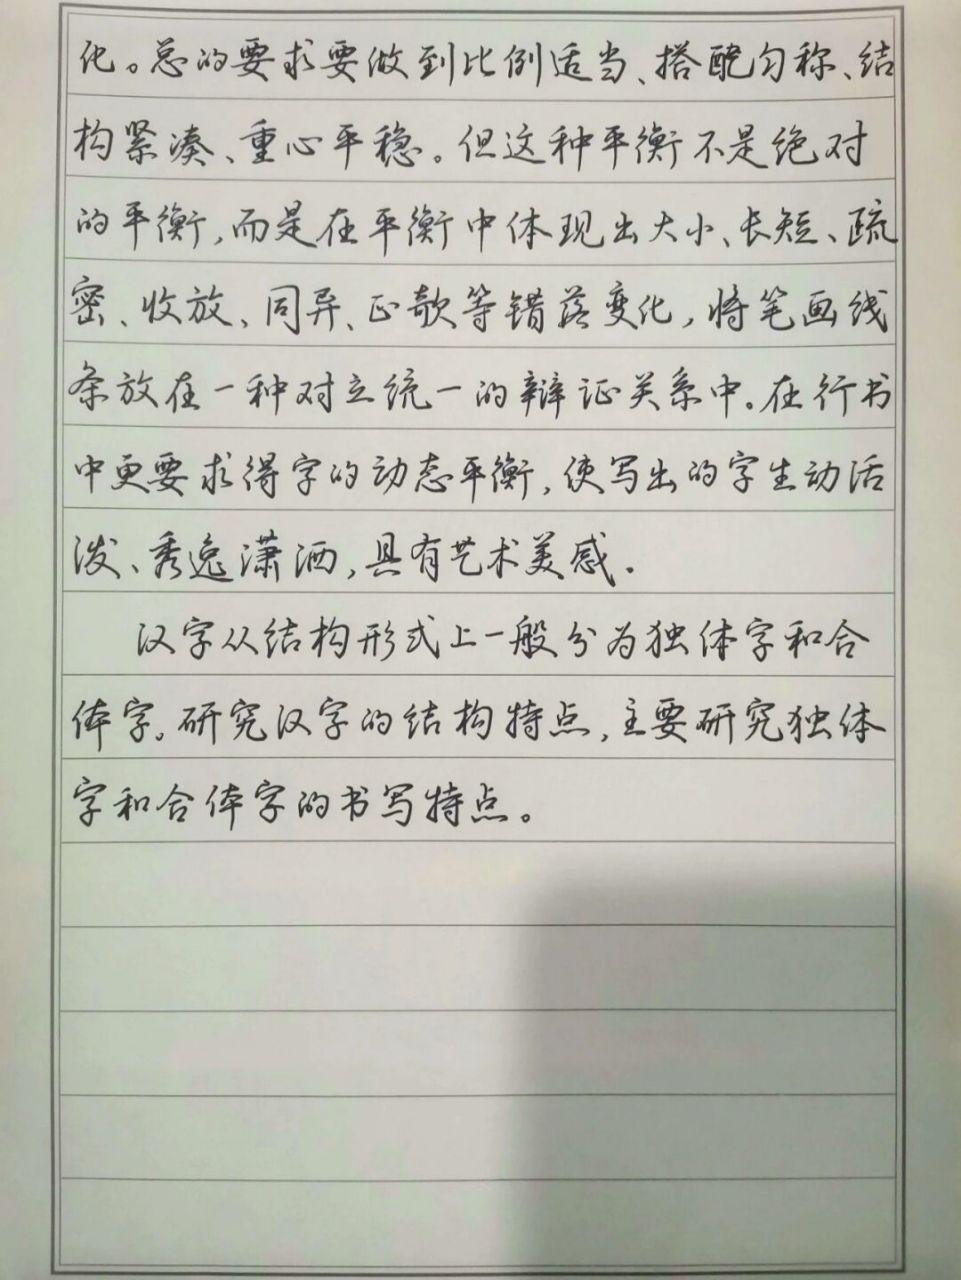 化。总的要求要做到比例适当、搭配匀称、结
构紧凑、重心平稳。但这种平衡不是绝对
的平衡,而是在平衡中体现出大小、长短、疏
密、收放、同异、正欹等错落变化,将笔画线
条放在一种对立统一的辩证关系中。在行书
中更要求得字的动态平衡,使写出的字生动活
泼、秀逸潇洒,具有艺术美感.
汉字从结构形式上一般分为独体字和合
体字。研究汉字的结构特点,主要研究独体
字和合体字的书写特点。